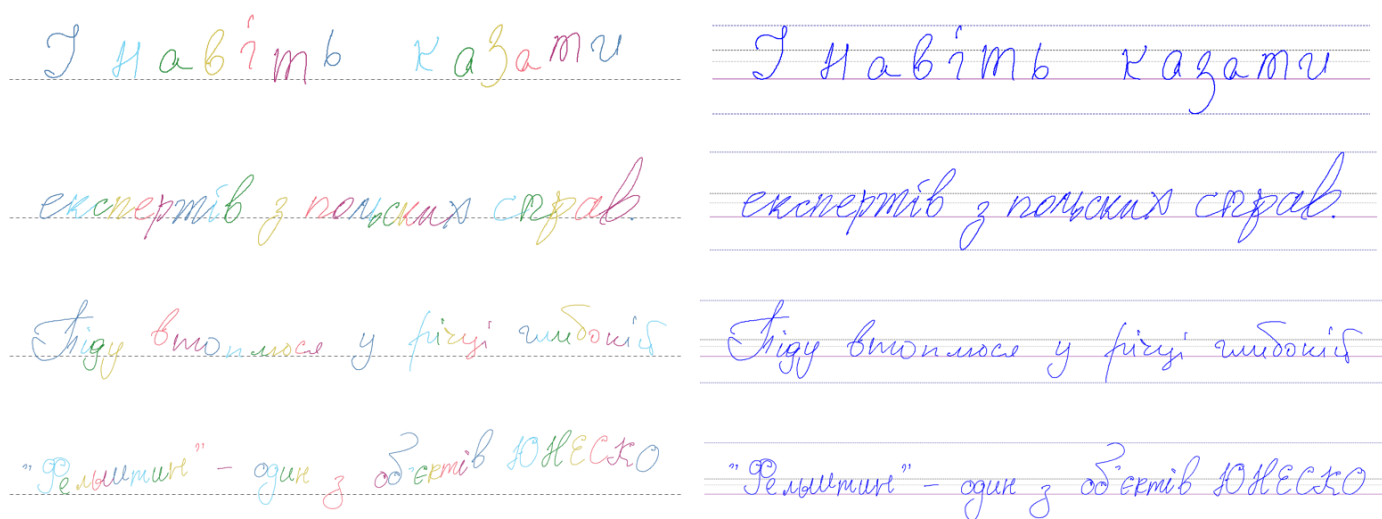 І навіть казати
експертів з польских справ.
Піду втоплюся у річці глибокій
"Фельштин" - один з об'єктів ЮНЕСКО
І навіть казати
експертів з польских справ.
Піду втоплюся у річці глибокій
"Фельштин" - один з об'єктів ЮНЕСКО